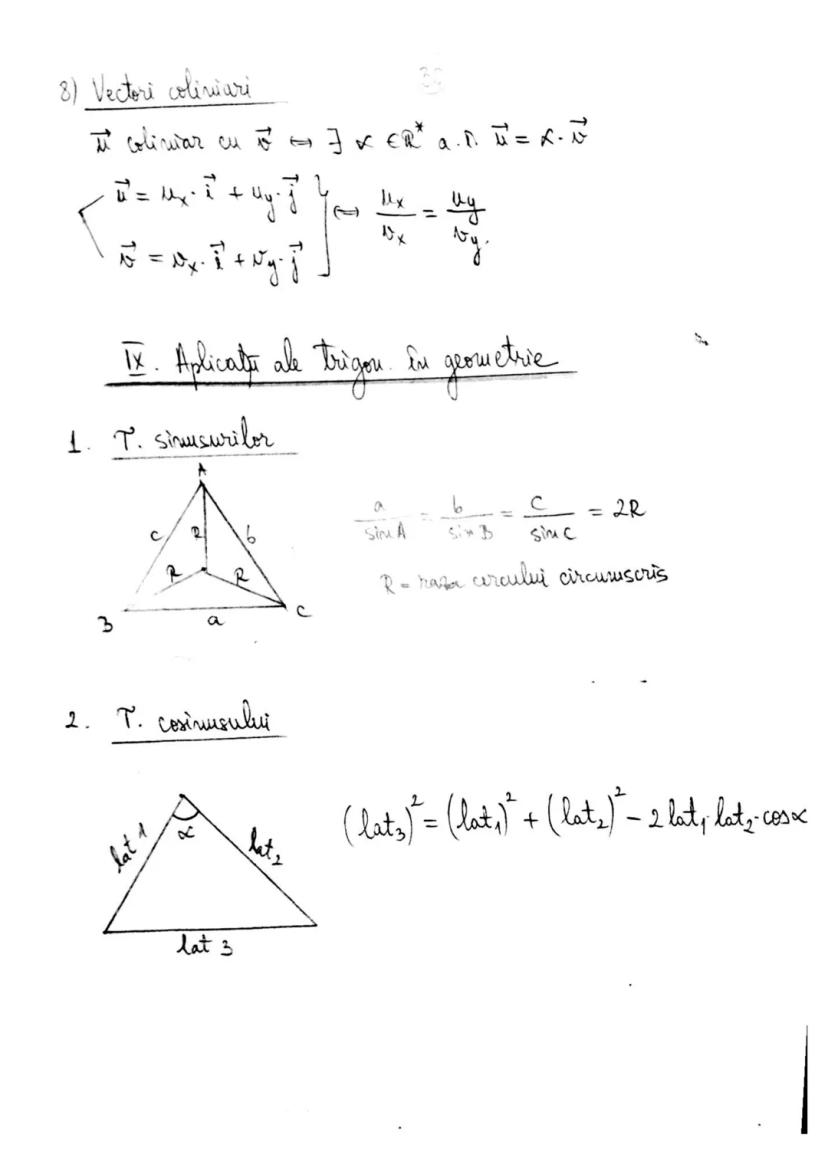 8) Vectori coliniari
u⃗ coliniar cu v⃗ ⇔ ∃ α ∈ ℝ* a.î. u⃗ = α · v⃗
u⃗ = uₓ · i⃗ + u_y · j⃗
v⃗ = vₓ · i⃗ + v_y · j⃗ } ⇔ uₓ/vₓ = u_y/v_y.
IX. Aplicații ale trigon. în geometrie
1. T. sinusurilor
A
c R b
R R
B a C
a/sin A = b/sin B = c/sin C = 2R
R = raza cercului circumscris
2. T. cosinusului
α
lat 1 lat₂
lat 3
(lat₃)² = (lat₁)² + (lat₂)² − 2 lat₁ · lat₂ · cos α